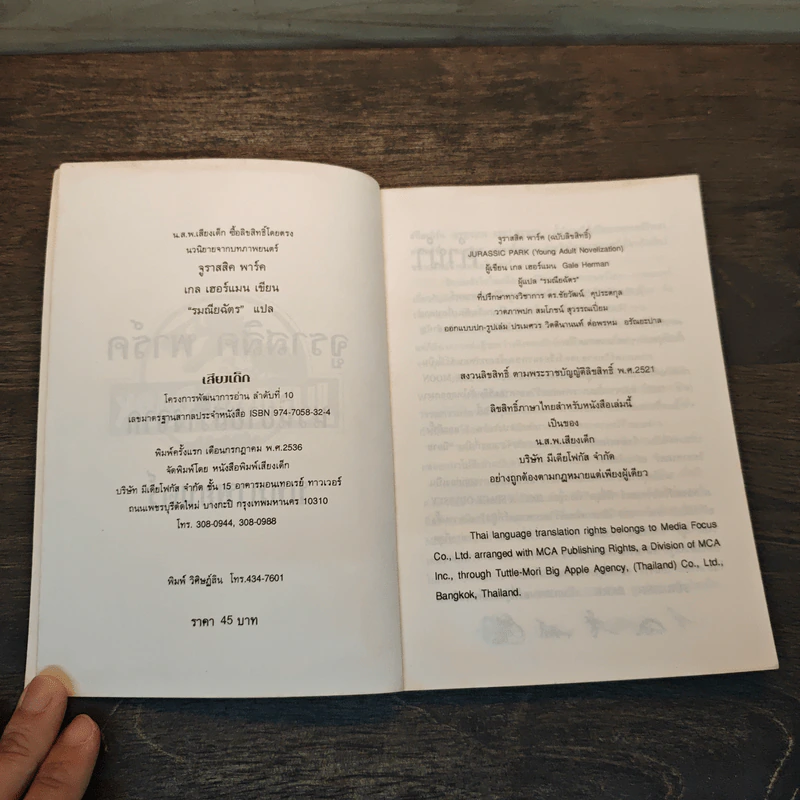 น.ส.พ.เสียงเด็ก ซื้อลิขสิทธิ์โดยตรง
นวนิยายจากบทภาพยนตร์
จูราสสิค พาร์ค
เกล เฮอร์แมน เขียน
"รมณียฉัตร" แปล
เสียงเด็ก
โครงการพัฒนาการอ่าน ลำดับที่ 10
เลขมาตรฐานสากลประจำหนังสือ ISBN 974-7058-32-4
พิมพ์ครั้งแรก เดือนกรกฎาคม พ.ศ.2536
จัดพิมพ์โดย หนังสือพิมพ์เสียงเด็ก
บริษัท มีเดียโฟกัส จำกัด ชั้น 15 อาคารมอนเทอเรย์ ทาวเวอร์
ถนนเพชรบุรีตัดใหม่ บางกะปิ กรุงเทพมหานคร 10310
โทร. 308-0944, 308-0988
พิมพ์ วิศิษฎ์สิน โทร.434-7601
ราคา 45 บาท
จูราสสิค พาร์ค (ฉบับลิขสิทธิ์)
JURASSIC PARK (Young Adult Novelization)
ผู้เขียน เกล เฮอร์แมน Gale Herman
ผู้แปล "รมณียฉัตร"
ที่ปรึกษาทางวิชาการ ดร.ชัยวัฒน์ คุประตกุล
วาดภาพปก สมโภชน์ สุวรรณเปี่ยม
ออกแบบปก-รูปเล่ม ปรเมศวร วิตตินานนท์ ต่อพรหม อรัณยะปาล
สงวนลิขสิทธิ์ ตามพระราชบัญญัติลิขสิทธิ์ พ.ศ.2521
ลิขสิทธิ์ภาษาไทยสำหรับหนังสือเล่มนี้
เป็นของ
น.ส.พ.เสียงเด็ก
บริษัท มีเดียโฟกัส จำกัด
อย่างถูกต้องตามกฎหมายแต่เพียงผู้เดียว
Thai language translation rights belongs to Media Focus
Co., Ltd. arranged with MCA Publishing Rights, a Division of MCA
Inc., through Tuttle-Mori Big Apple Agency, (Thailand) Co., Ltd.,
Bangkok, Thailand.